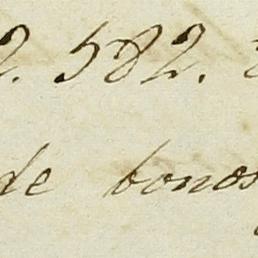 2. 582.
de bonos